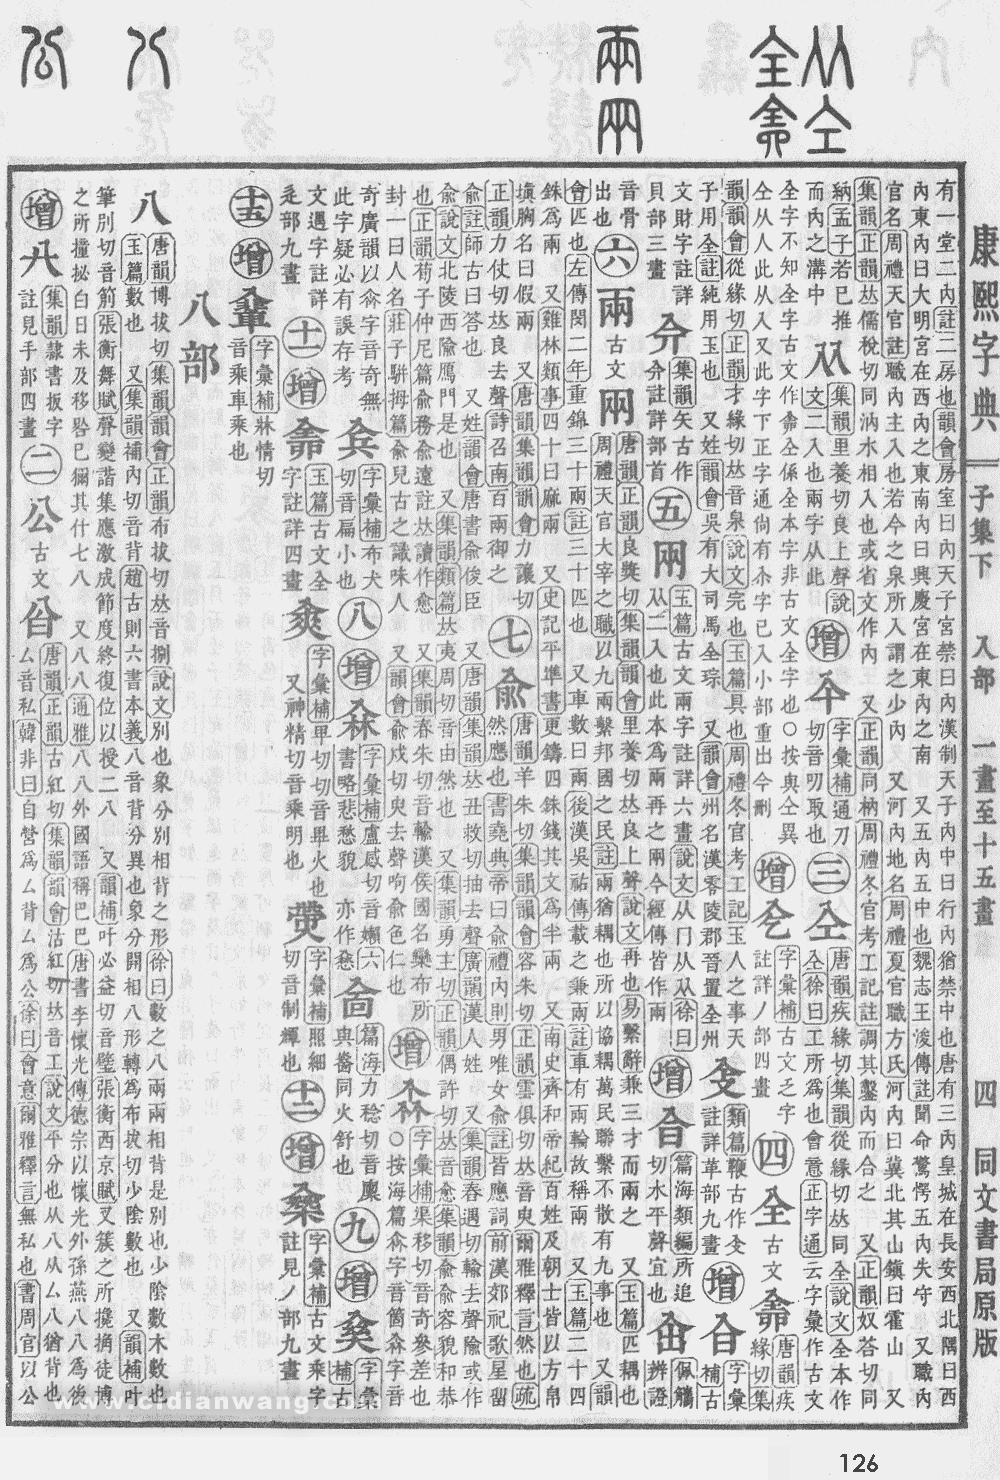 康熙字典 子集下 入部 一畫至十五畫 四 同文書局原版
有一堂二內註二房也韻會房室曰內天子宮禁曰內漢制天子內中曰行內猶禁中也唐有三內皇城在長安西北隅曰西
內東內曰大明宮在西內之東南內曰興慶宮在東內之南 又五內五中也魏志王浚傳註聞命驚愕五內失守 又職內
官名周禮天官註職內主入也若今之泉所入謂之少內 又河內地名周禮夏官職方氏河內曰冀北其山鎭曰霍山 又
集韻正韻𠀤儒稅切同汭水相入也或省文作內 又正韻同枘周禮冬官考工記註調其鑿內而合之 又正韻奴荅切同
納孟子若已推
而內之溝中
集韻里養切良上聲說
文二入也兩字从此
增
字彙補通刀
切音叨取也
三
仝
唐韻疾緣切集韻從緣切𠀤同全說文全本作
仝徐曰工所爲也會意正字通云字彙作古文
全字不知全字古文作㒰仝係全本字非古文全字也○按與仝異
仝从人此从入又此字下正字通尙有㒰字已入小部重出今刪
增
字彙補古文乏字
註詳丿部四畫
四
全
古文㒰
唐韻疾
緣切集
韻韻會從緣切正韻才緣切𠀤音泉說文完也玉篇具也周禮冬官考工記玉人之事天
子用全註純用玉也 又姓韻會吳有大司馬全琮 又韻會州名漢零陵郡晉置全州
類篇鞭古作㒰
註詳革部九畫
增
字彙
補古
文財字註詳
貝部三畫
集韻矢古作
註詳部首
五
㒳
玉篇古文兩字註詳六畫說文从冂从从徐曰
从二入也此本爲兩再之兩今經傳皆作兩
增
篇海類編所追
切水平聲宜也
佩觿
辨證
音骨
出也
六
兩
古文㒳
唐韻正韻良獎切集韻韻會里養切𠀤良上聲說文再也易繫辭兼三才而兩之 又玉篇匹耦也
周禮天官大宰之職以九兩繫邦國之民註兩猶耦也所以協耦萬民聯繫不散有九事也 又韻
會匹也左傳閔二年重錦三十兩註三十匹也 又車數曰兩後漢吳祐傳載之兼兩註車有兩輪故稱兩 又玉篇二十四
銖爲兩 又雞林類事四十曰麻兩 又史記平準書更鑄四銖錢其文爲半兩 又南史齊和帝紀百姓及朝士皆以方帛
塡胸名曰假兩 又唐韻集韻韻會力讓切
正韻力仗切𠀤良去聲詩召南百兩御之
七
兪
唐韻羊朱切集韻韻會容朱切正韻雲俱切𠀤音臾爾雅釋言然也疏
然應也書堯典帝曰兪禮內則男唯女兪註皆應詞前漢郊祀歌星留
兪註師古曰答也 又姓韻會唐書兪俊臣 又唐韻集韻𠀤丑救切抽去聲廣韻漢人姓 又集韻舂遇切輸去聲隃或作
兪說文北陵西隃鴈門是也 又集韻類篇𠀤夷周切音由然也 又集韻勇主切正韻偶許切𠀤音愈集韻兪兪容貌和恭
也正韻荀子仲尼篇兪務兪遠註𠀤讀作愈 又集韻春朱切音輸漢侯國名欒布所
封一曰人名莊子騈拇篇兪兒古之識味人 又韻會兪戍切臾去聲呴兪色仁也
增
㒰
字彙補渠移切音奇參差也
○按海篇㒰字音箇㒰字音
奇廣韻以㒰字音奇無
此字疑必有誤存考
字彙補布犬
切音扁小也
八
增
字彙補盧感切音嬾六
書略悲愁貌 亦作
篇海力稔切音廩
與㐭同火舒也
九
增
字彙
補古
文遇字註詳
辵部九畫
十一
增
玉篇古文全
字註詳四畫
字彙補卑切切音畢火也
又神精切音乘明也
字彙補照細
切音制燀也
十二
增
字彙補古文乘字
註見丿部九畫
十五
增
字彙補牀情切
音乘車乘也
八部
八
唐韻博拔切集韻韻會正韻布拔切𠀤音捌說文別也象分別相背之形徐曰數之八兩兩相背是別也少陰數木數也
玉篇數也 又集韻補內切音背趙古則六書本義八音背分異也象分開相八形轉爲布拔切少陰數也 又韻補叶
筆別切音莂張衡舞賦聲變諧集應激成節度終復位以授二八 又韻補叶必益切音璧張衡西京賦叉簇之所攙捔徒搏
之所撞㧙白日未及移晷已獮其什七八 又八八通雅八八外國語稱巴巴唐書李懷光傳德宗以懷光外孫燕八八爲後
增
集韻隸書扳字
註見手部四畫
二
公
古文
唐韻正韻古紅切集韻韻會沽紅切𠀤音工說文平分也从八从厶八猶背也
厶音私韓非曰自營爲厶背厶爲公徐曰會意爾雅釋言無私也書周官以公
www.cidianwang.com
126